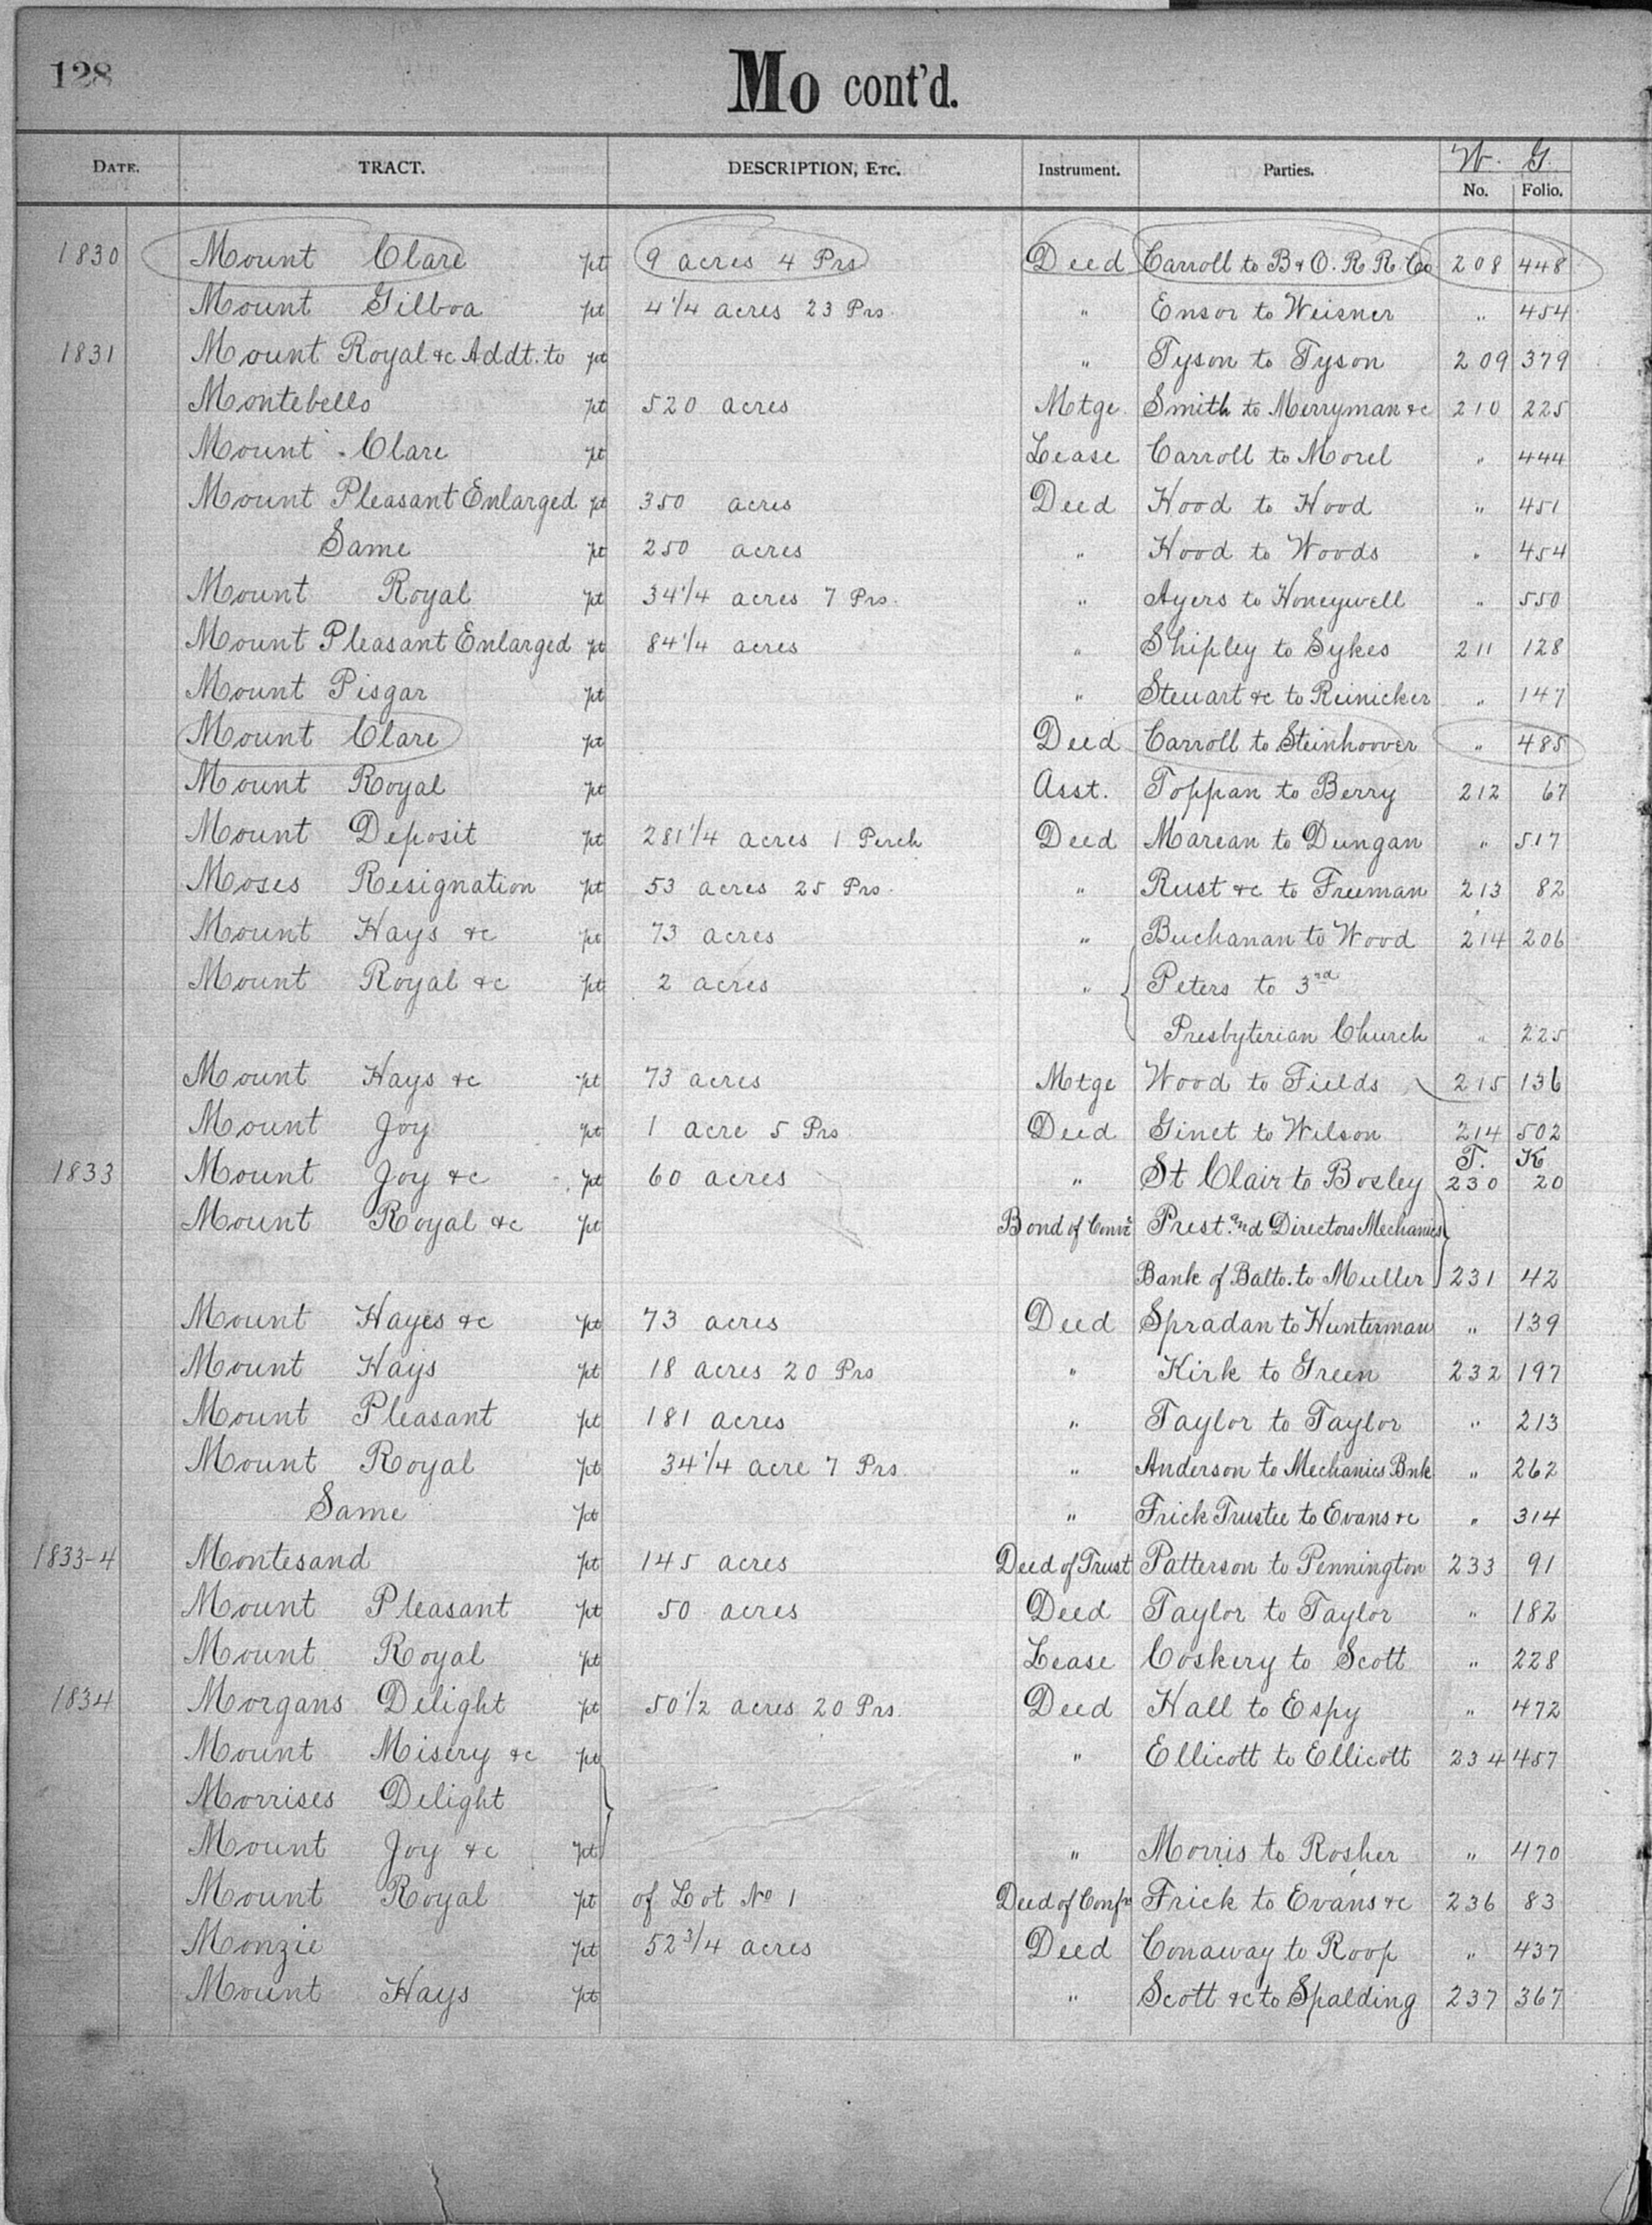 128
Mo cont'd.
DATE. TRACT. DESCRIPTION, ETC. Instrument. Parties. W. G.
No. Folio.
1830 Mount Clare pt 9 acres 4 Prs Deed Carroll to B & O. R R. Co 208 448
Mount Gilboa pt 4 1/4 acres 23 Prs. " Ensor to Weisner " 454
1831 Mount Royal &c Addt. to pt " Tyson to Tyson 209 379
Montebello pt 520 acres Mtge. Smith to Merryman &c 210 225
Mount Clare pt Lease Carroll to Morel " 444
Mount Pleasant Enlarged pt 350 acres Deed Hood to Hood " 451
Same pt 250 acres " Hood to Woods " 454
Mount Royal pt 34 1/4 acres 7 Prs. " Ayers to Honeywell " 550
Mount Pleasant Enlarged pt 84 1/4 acres " Shipley to Sykes 211 128
Mount Pisgar pt " Steuart &c to Reinicker " 147
Mount Clare pt Deed Carroll to Steinhoover " 485
Mount Royal pt Asst. Toppan to Berry 212 67
Mount Deposit pt 281 1/4 acres 1 Perch Deed Marean to Dungan " 517
Moses Resignation pt 53 acres 25 Prs. " Rust &c to Freeman 213 82
Mount Hays &c pt 73 acres " Buchanan to Wood 214 206
Mount Royal &c pt 2 acres " Peters to 3rd
Presbyterian Church " 225
Mount Hays &c pt 73 acres Mtge Wood to Fields 215 136
Mount Joy pt 1 acre 5 Prs Deed Ginet to Wilson 214 502
T. K
1833 Mount Joy &c pt 60 acres " St Clair to Bosley 230 20
Mount Royal &c pt Bond of Convc Prest. and Directors Mechanics
Bank of Balto. to Muller 231 42
Mount Hayes &c pt 73 acres Deed Spradan to Hunterman " 139
Mount Hays pt 18 acres 20 Prs " Kirk to Green 232 197
Mount Pleasant pt 181 acres " Taylor to Taylor " 213
Mount Royal pt 34 1/4 acre 7 Prs. " Anderson to Mechanics Bnk " 262
Same pt " Frick Trustee to Evans &c " 314
1833-4 Montesand pt 145 acres Deed of Trust Patterson to Pennington 233 91
Mount Pleasant pt 50 acres Deed Taylor to Taylor " 182
Mount Royal pt Lease Coskery to Scott " 228
1834 Morgans Delight pt 50 1/2 acres 20 Prs. Deed Hall to Espy " 472
Mount Misery &c pt " Ellicott to Ellicott 234 457
Morrises Delight
Mount Joy &c pt " Morris to Rosher " 470
Mount Royal pt of Lot No 1 Deed of Confr Frick to Evans &c 236 83
Monzie pt 52 3/4 acres Deed Conaway to Roop " 437
Mount Hays pt " Scott &c to Spalding 237 367